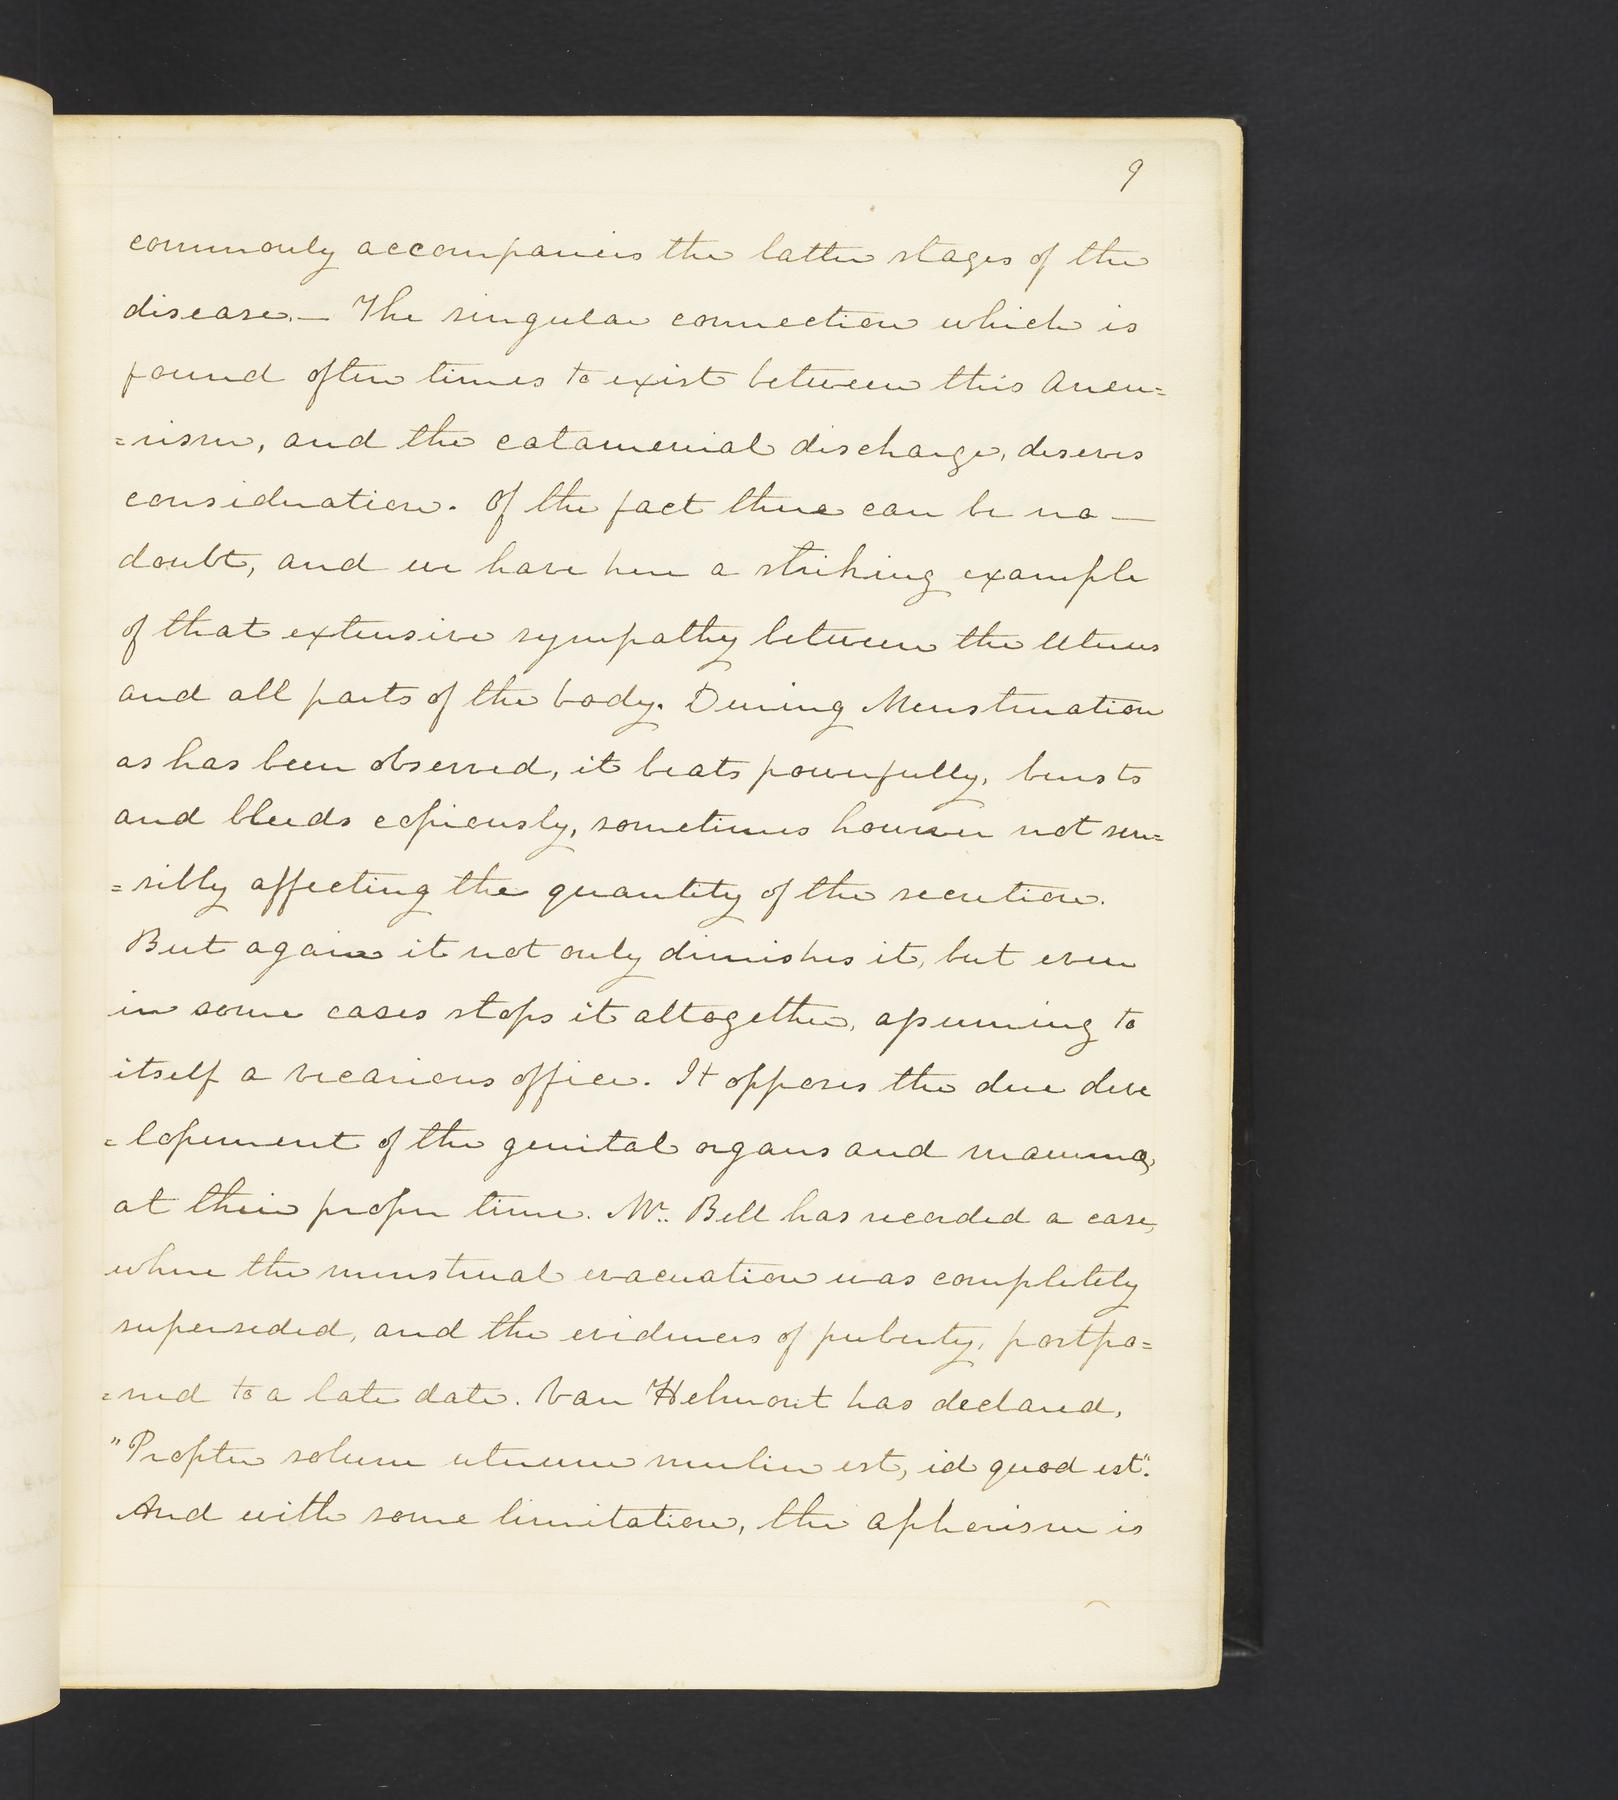 9
commonly accompanies the latter stages of the
disease.— The singular connection which is
found often times to exist between this Aneu=
=rism, and the catamenial discharge, deserves
consideration. Of the fact there can be no —
doubt, and we have here a striking example
of that extensive sympathy between the Uterus
and all parts of the body. During Menstruation
as has been observed, it beats powerfully, bursts
and bleeds copiously, sometimes however not sen=
=sibly affecting the quantity of the secretion.
But again it not only diminishes it, but even
in some cases stops it altogether, assuming to
itself a vicarious office. It opposes the due deve
=lopement of the genital organs and mamma,
at their proper time. Mr. Bell has recorded a case,
where the menstrual evacuation was completely
superseded, and the evidences of puberty, postpo=
=ned to a late date. Van Helmont has declared,
"Propter solum uterum mulier est, id quod est".
And with some limitation, the aphorism is